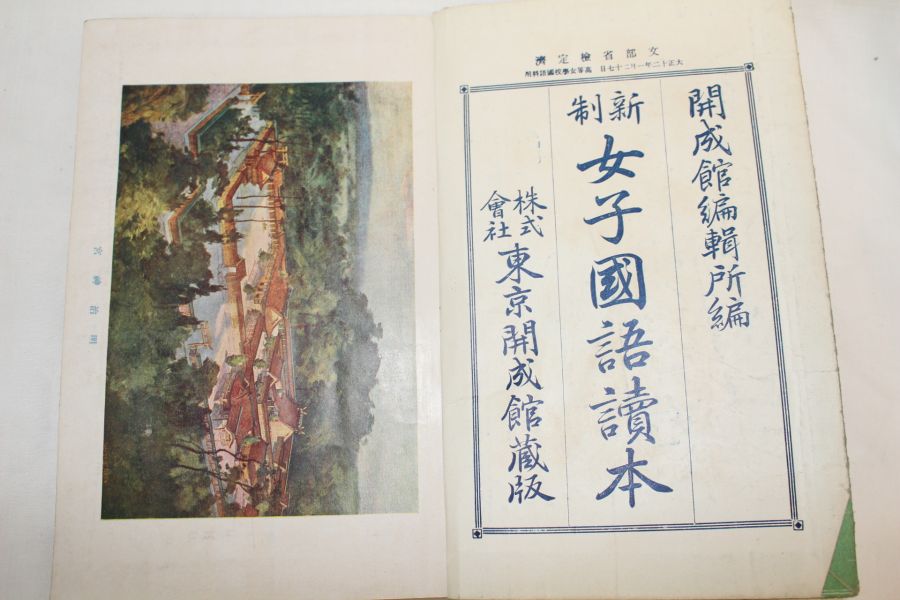 文部省檢定濟
大正十二年一月二十七日 高等女學校國語科用
開成館編輯所編
新制
女子國語讀本
株式會社
東京開成館藏版
明治神宮